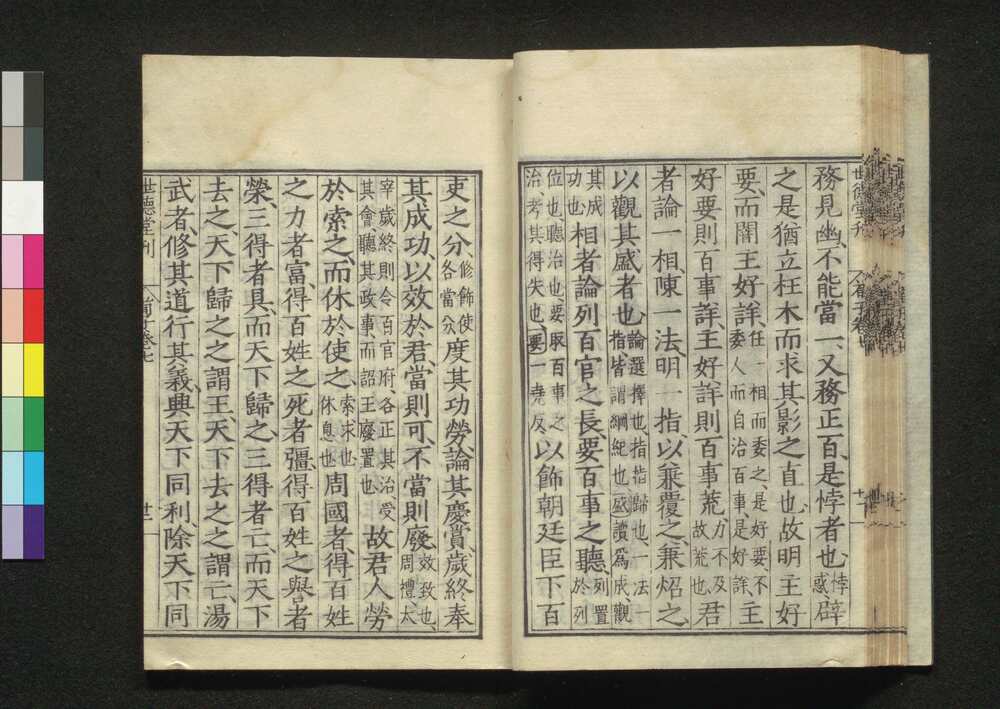 世德堂刊
荀子卷七
務見幽、不能當一、又務正百、是悖者也、悖惑、辟
之是猶立枉木而求其影之直也、故明主好
要、而闇主好詳、任一相而委之、是好要、不委人而自治百事、是好詳、主
好要則百事詳、主好詳則百事荒、力不及故荒也、君
者論一相、陳一法、明一指、以兼覆之、兼炤之、
以觀其盛者也、論選擇也、指指歸也、一法一指皆謂綱紀也、盛讀爲成、觀
其成功也、相者論列百官之長、要百事之聽、列置於列
位也、聽治也、要取百事之治、考其得失也、要一堯反、以飾朝廷臣下百
吏之分、修飾使各當分、度其功勞論其慶賞、歲終奉
其成功、以效於君、當則可、不當則廢、效致也、周禮太
宰歲終則令百官府、各正其治、受其會、聽其政事、而詔王廢置也、故君人勞
於索之、而休於使之、索求也、休息也、用國者、得百姓
之力者富、得百姓之死者彊、得百姓之譽者
榮、三得者具、而天下歸之、三得者亡、而天下
去之、天下歸之之謂王、天下去之之謂亡、湯
武者、修其道行其義、興天下同利、除天下同
世德堂刊
荀子卷七
廿一